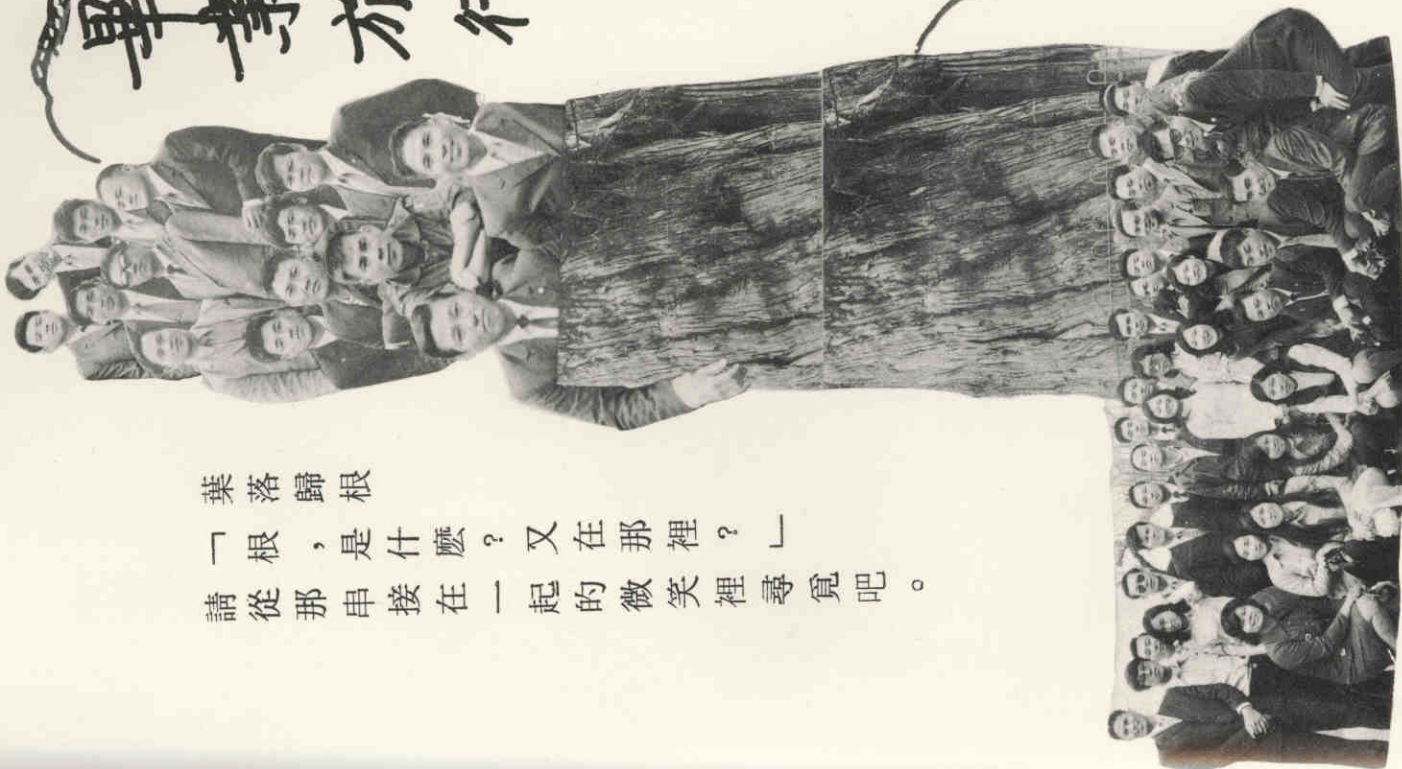 畢業旅行
葉落歸根
「根，是什麼？又在那裡？」
請從那串接在一起的微笑裡尋覓吧。